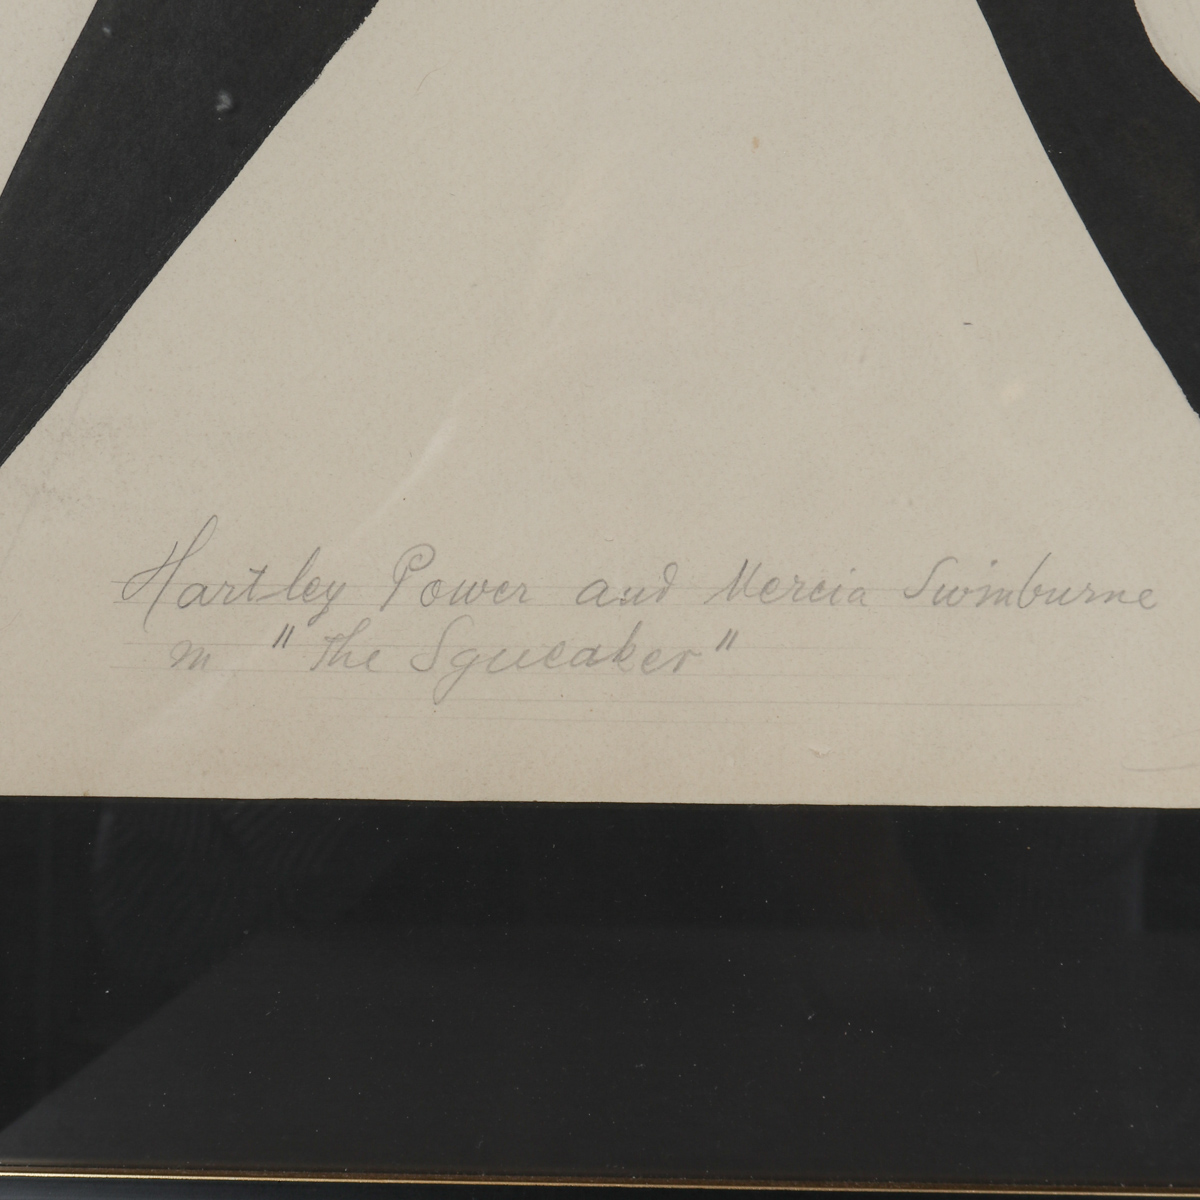 Hartley Power and Mercia Swinburne
in "The Squeaker"